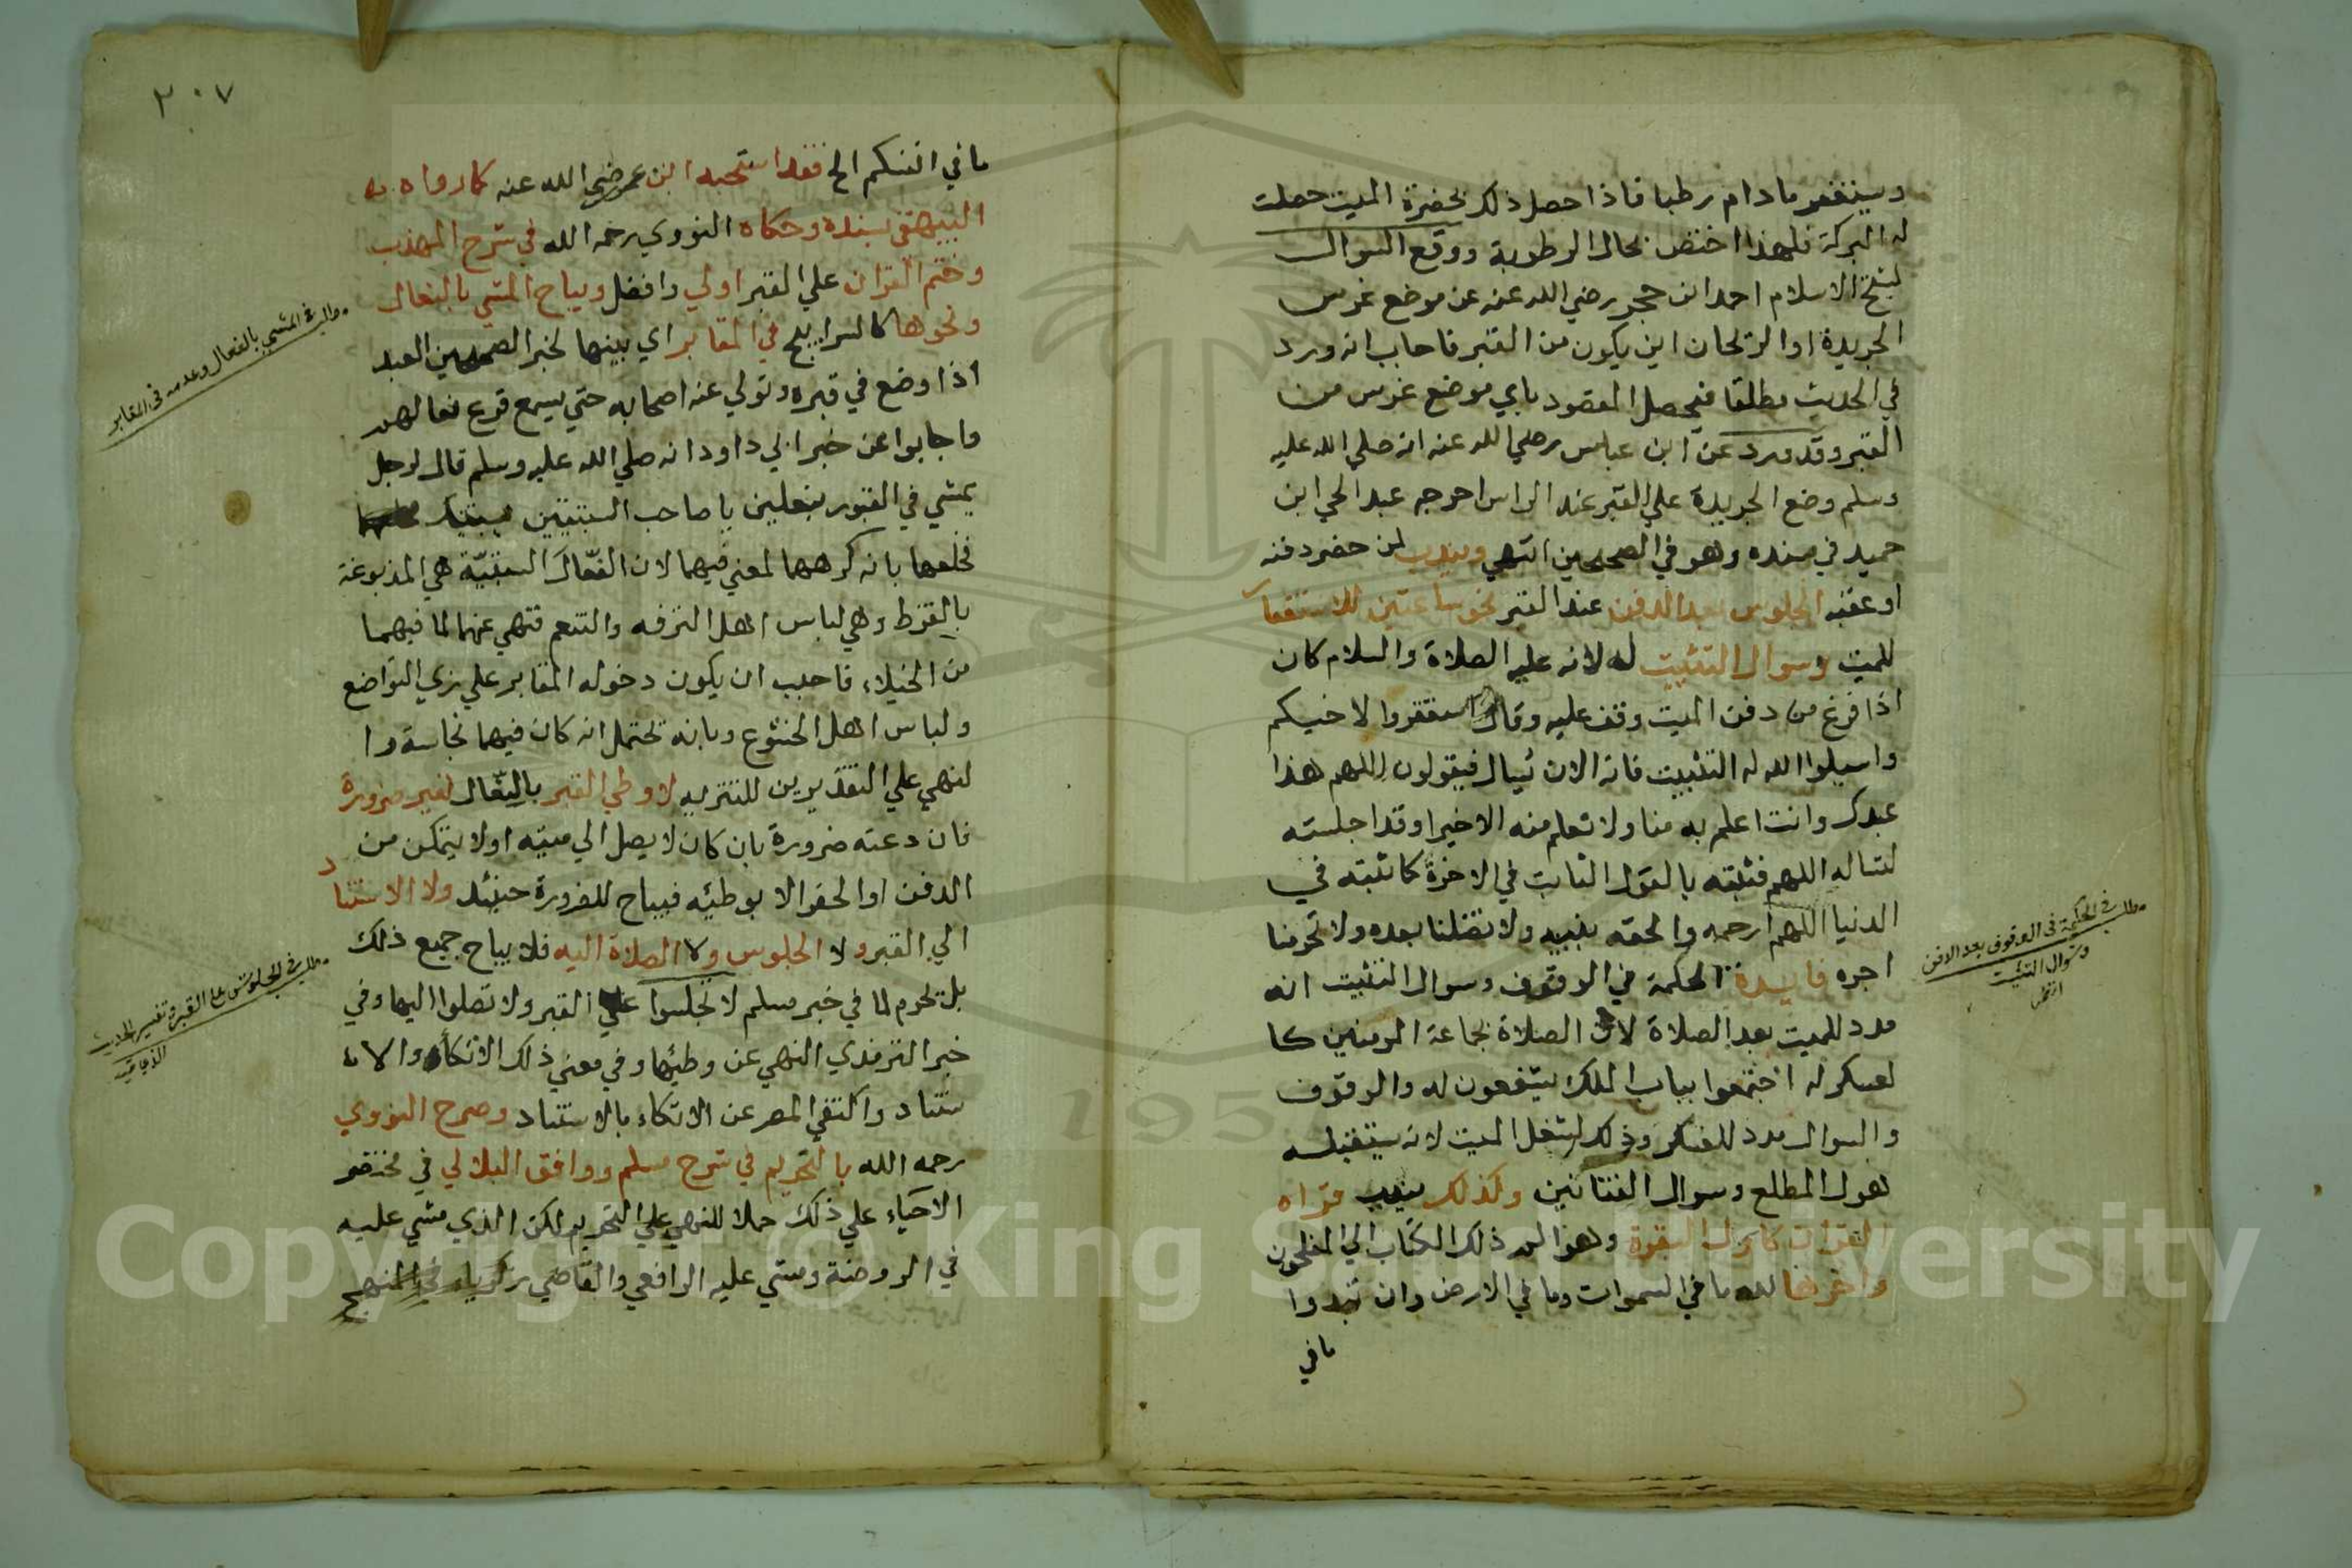 ويستغفر ما دام رطبا فاذا حصل ذلك بحضرة الميت حصلت
له البركة فلهذا اختص بحال الرطوبة ووقع السوال
لشيخ الاسلام احمد ابن حجر رضي الله عنه عن موضع غرس
الجريدة او الريحان اين يكون من القبر فاجاب انه ورد
في الحديث مطلقا فيحصل المقصود باي موضع غرس من
القبر وقد ورد عن ابن عباس رضي الله عنه انه صلي الله عليه
وسلم وضع الجريدة علي القبر عند الراس اخرجه عبد الحي ابن
حميد في مسنده وهو في الصحيحين انتهي ويندب لمن حضر دفنه
او عقبه الجلوس بعد الدفن عند القبر نحو ساعتين للاستغفار
للميت وسوال التثبيت له لانه عليه الصلاة والسلام كان
اذا فرغ من دفن الميت وقف عليه وقال استغفروا لاخيكم
واسيلوا الله له التثبيت فانه الان يسال فيقولون اللهم هذا
عبدك وانت اعلم به منا ولا نعلم منه الا خيرا وقد اجلسته
لتساله اللهم فثبته بالقول الثابت في الاخرة كما ثبته في
الدنيا اللهم ارحمه والحقه بنبيه ولا تضلنا بعده ولا تحرمنا
اجره فايدة الحكمة في الوقوف وسوال التثبيت انه
مدد للميت بعد الصلاة لان الصلاة بجماعة المومنين كا
لعسكر له اجتمعوا بباب الملك يشفعون له والوقوف
والسوال مدد للعسكر وذلك لشغل الميت لانه يستقبله
هول المطلع وسوال الفتانين وكذلك يندب قراه
القران كاول البقرة وهو الم ذلك الكتاب الي المفلحون
واخرها لله ما في السموات وما في الارض وان تبدوا
ما في
مطلب في الحكمة في الوقوف بعد الدفن
وسوال التثبيت
انظر
٢٠٧
ما في انفسكم الخ فقد استحبه ابن عمر رضي الله عنه كما رواه
البيهقي بسنده وحكاه النووي رحمه الله في شرح المهذب
وختم القران علي القبر اولي وافضل ويباح المشي بالنعال
ونحوها كالسرابيج في المقابر اي بينها لخبر الصحيحين العبد
اذا وضع في قبره وتولي عنه اصحابه حتي يسمع قرع نعالهم
واجابوا عن خبر ابي داود انه صلي الله عليه وسلم قال لرجل
يمشي في القبور بنعلين يا صاحب السبتيتين
فخلعها بانه كرههما لمعني فيهما لان النعال السبتية هي المدبوغة
بالقرظ وهي لباس اهل الترفه والتنعم فنهي عنهما لما فيهما
من الخيلاء فاحب ان يكون دخوله المقابر علي زي التواضع
ولباس اهل الخشوع وبانه تحتمل انه كان فيهما نجاسة وا
لنهي علي التقديرين للتنزيه لا وطي القبر بالنعال لغير ضرورة
فان دعته ضرورة بان كان لا يصل الي ميته او لا يتمكن من
الدفن او الحفر الا بوطئه فيباح للضرورة حينئذ ولا الاستناد
الي القبر ولا الجلوس ولا الصلاة اليه فلا يباح جميع ذلك
بل تحرم لما في خبر مسلم لا تجلسوا علي القبر ولا تصلوا اليها وفي
خبر الترمذي النهي عن وطئها وفي معني ذلك الاتكاء والا
ستناد واكتفي المصر عن الاتكاء بالاستناد وصرح النووي
رحمه الله بالتحريم في شرح مسلم ووافق البلالي في مختصر
الاحياء علي ذلك حملا للنهي علي التحريم لكن الذي مشي عليه
في الروضة ومشي عليه الرافعي والقاضي زكرياء في المنهج
مطلب في المشي بالنعال وعدمه في المقابر
مطلب في الجلوس علي القبر وتفسير الحديث
الذي فيه
Copyright © King Saud University
1957